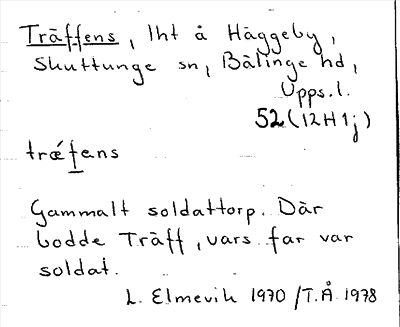 Träffens, lht å Häggeby,
Skuttunge sn, Bälinge hd,
Upps.l.
52(12H1j)
træ´fens
Gammalt soldattorp. Där
bodde Träff, vars far var
soldat.
L. Elmevik 1970/T.Å. 1978